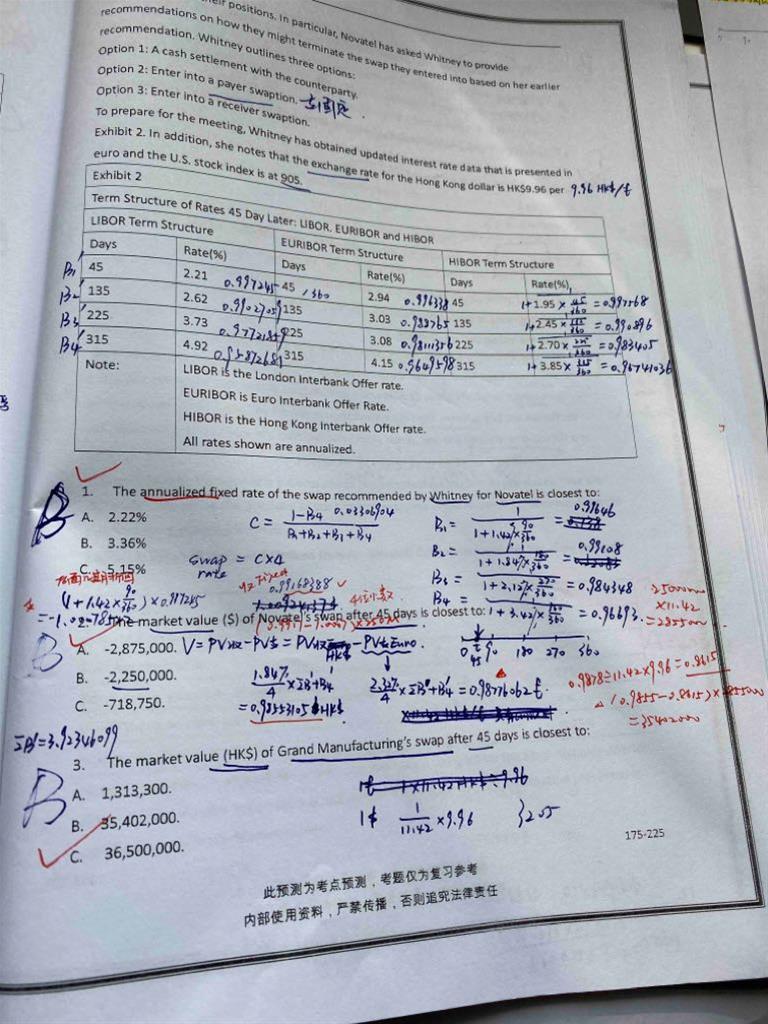 their positions. In particular, Novatel has asked Whitney to provide
recommendations on how they might terminate the swap they entered into based on her earlier
recommendation. Whitney outlines three options:
Option 1: A cash settlement with the counterparty.
Option 2: Enter into a payer swaption.
Option 3: Enter into a receiver swaption.
To prepare for the meeting, Whitney has obtained updated interest rate data that is presented in
Exhibit 2. In addition, she notes that the exchange rate for the Hong Kong dollar is HK$9.96 per 9.96 HK$/€
euro and the U.S. stock index is at 905.
Exhibit 2
Term Structure of Rates 45 Day Later: LIBOR, EURIBOR and HIBOR
LIBOR Term Structure EURIBOR Term Structure HIBOR Term Structure
Days Rate(%) Days Rate(%) Days Rate(%)
B1' 45 2.21 0.997245 45 /360 2.94 0.996338 45 1+1.95 × 45/360 = 0.997568
B2' 135 2.62 0.9902709 135 3.03 0.988765 135 1+2.45 × 135/360 = 0.990896
B3' 225 3.73 0.9772184 225 3.08 0.9811356 225 1+2.70 × 225/360 = 0.983405
B4' 315 4.92 0.9587268 315 4.15 0.9649598 315 1+3.85 × 315/360 = 0.9674103
Note: LIBOR is the London Interbank Offer rate.
EURIBOR is Euro Interbank Offer Rate.
HIBOR is the Hong Kong Interbank Offer rate.
All rates shown are annualized.
B 1. The annualized fixed rate of the swap recommended by Whitney for Novatel is closest to:
A. 2.22%
B. 3.36%
C. 5.15%
C = 1-B4 / B1+B2+B3+B4 0.03306904
swap rate = C×4
B1 = 1 / 1+1.42% 90/360 = 0.99646
B2 = 1 / 1+1.84% 180/360 = 0.99108
B3 = 1 / 1+2.12% 270/360 = 0.984348
B4 = 1 / 1+3.42% 360/360 = 0.96693
(1+1.42× 90/360)×0.997245
0.99168388
B The market value ($) of Novatel's swap after 45 days is closest to:
A. -2,875,000.
B. -2,250,000.
C. -718,750.
1.84%/4 × ΣB'+B4' = 0.98553105 HK$
2.32%/4 × ΣB'+B4' = 0.98776062 €
0 45 90 180 270 360
0.9878÷11.42×9.96=0.8615
(0.9855-0.8615)×285500
=35402000
ΣB'=3.92346099
B 3. The market value (HK$) of Grand Manufacturing's swap after 45 days is closest to:
A. 1,313,300.
B. 35,402,000.
C. 36,500,000.
1/11.42 × 9.96
175-225
此预测为考点预测，考题仅为复习参考
内部使用资料，严禁传播，否则追究法律责任